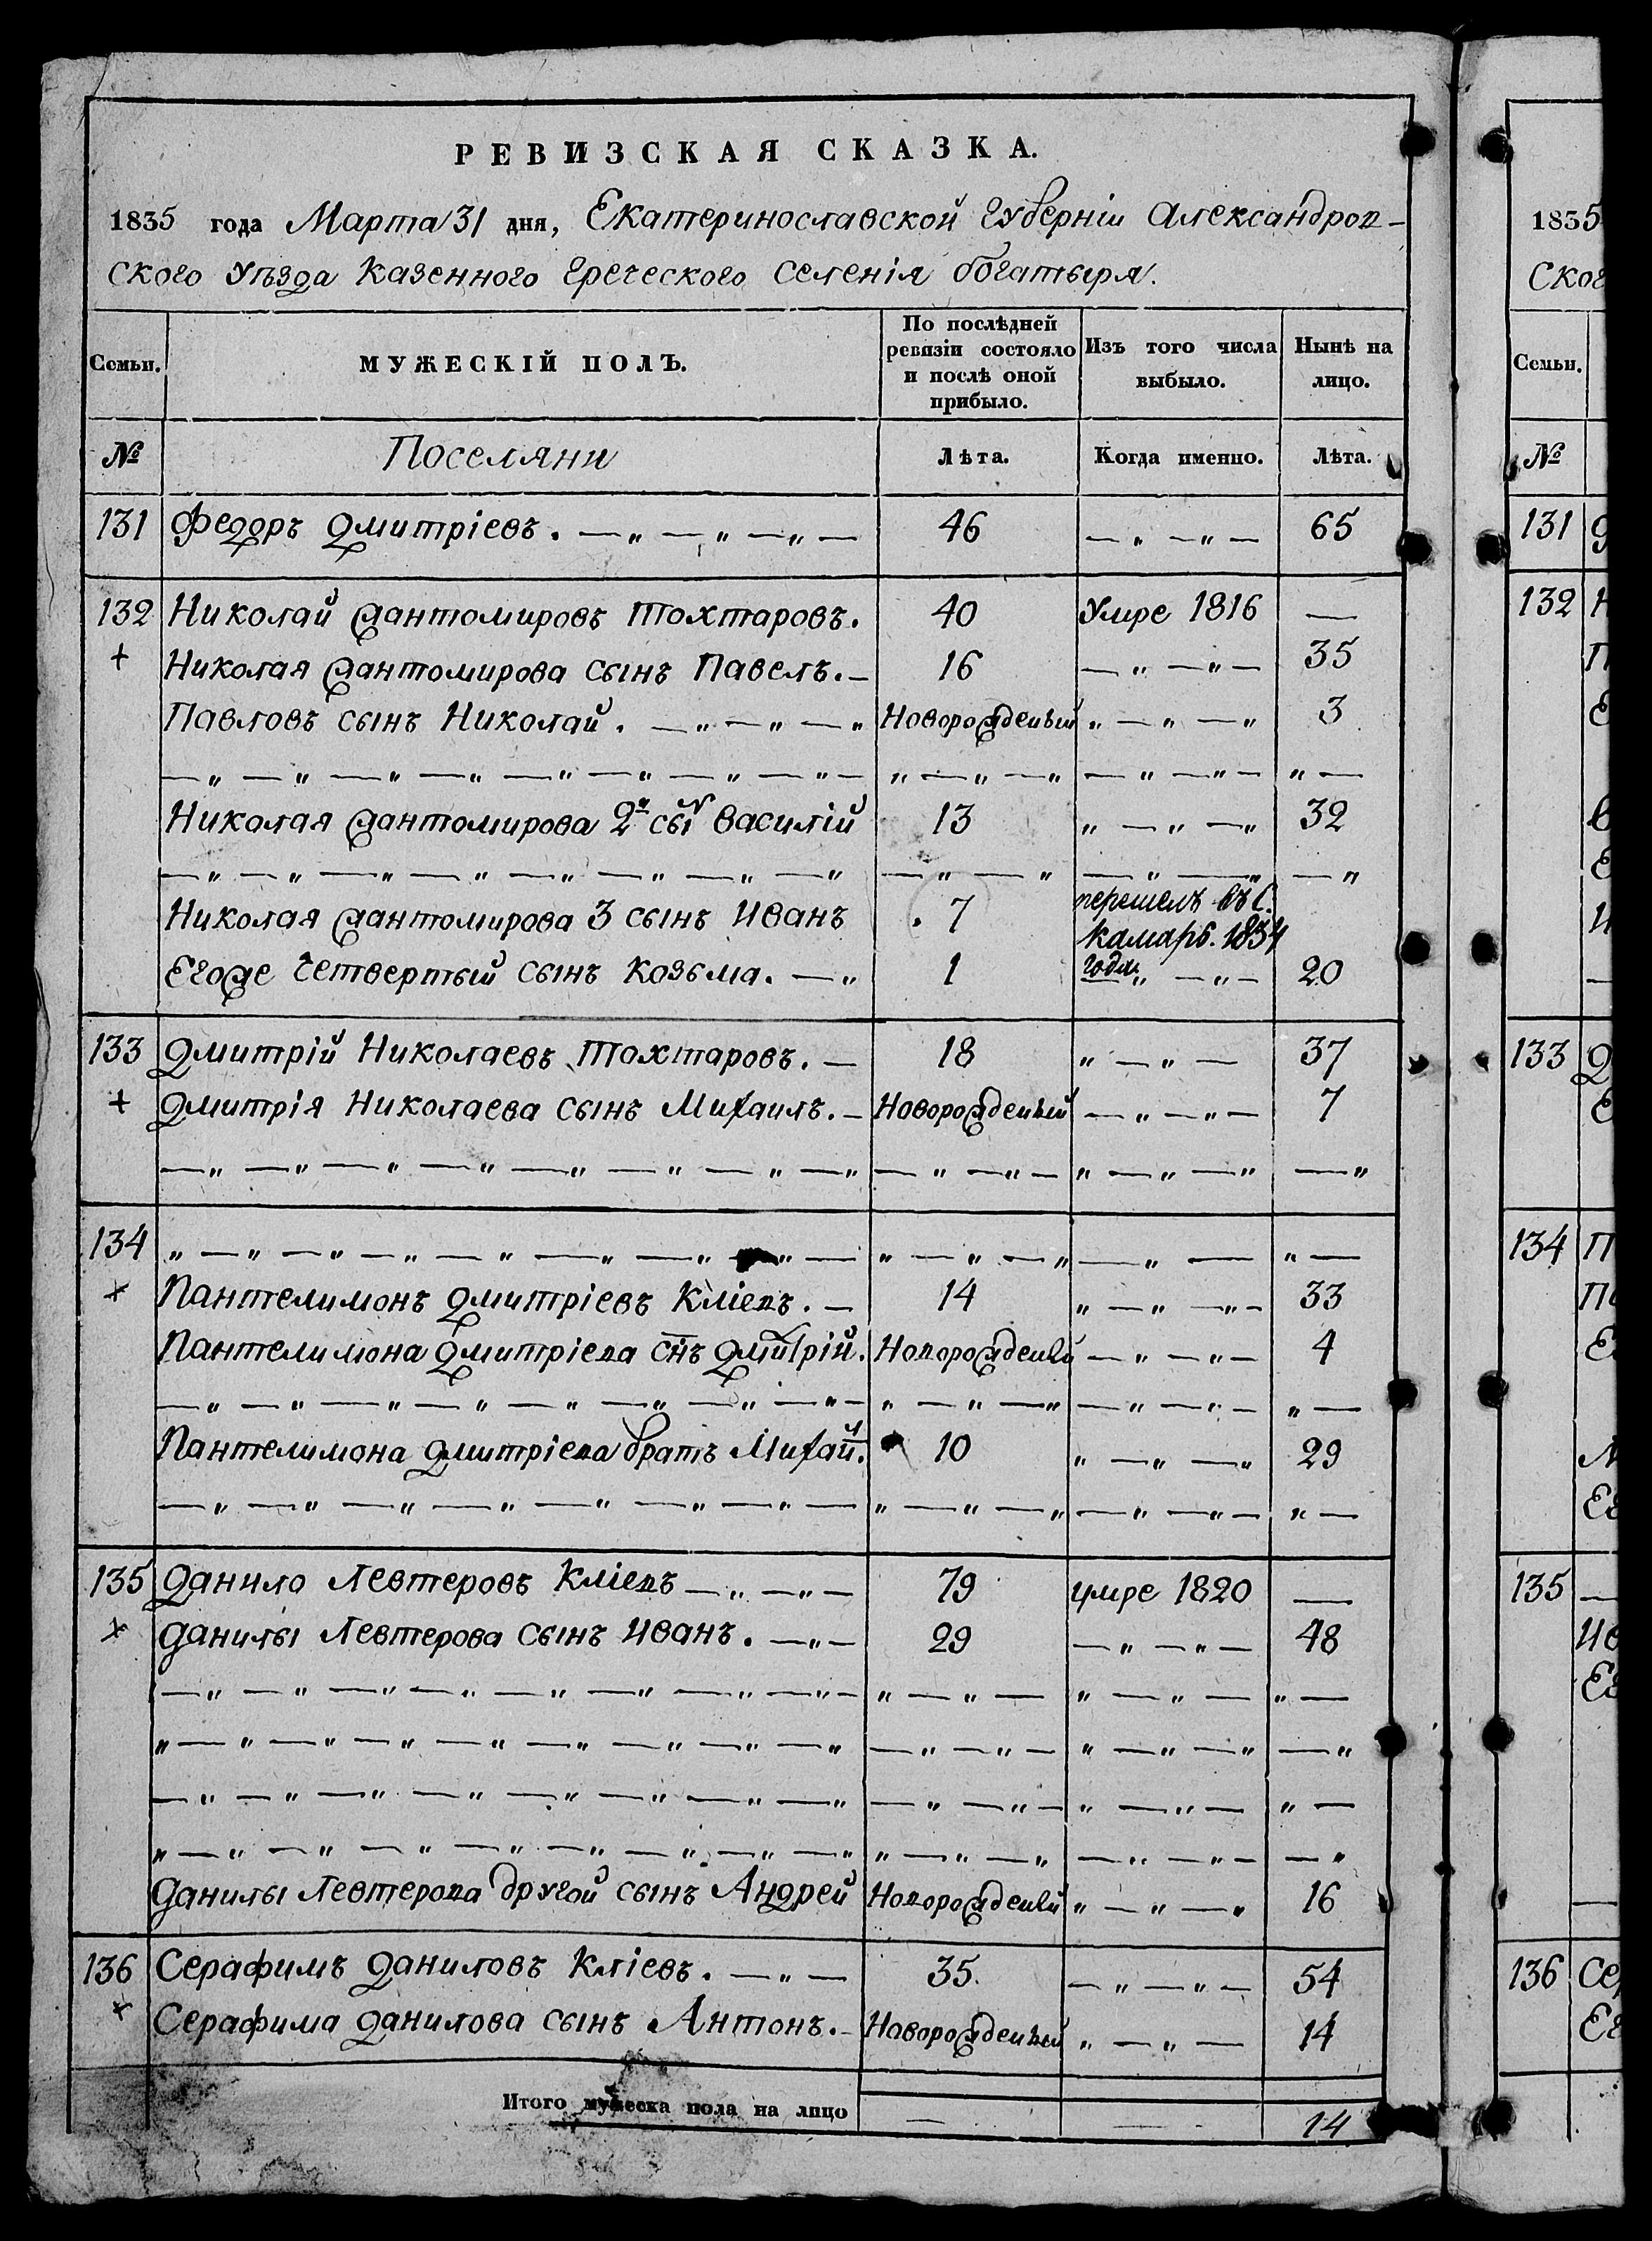 РЕВИЗСКАЯ СКАЗКА.
1835 года Марта 31 дня, Екатеринославской Губерніи Александров-
ского Уѣзда Казенного Греческого Селенія Богатыря.
Семьи. МУЖЕСКІЙ ПОЛЪ. По послѣдней ревизіи состояло и послѣ оной прибыло. Изъ того числа выбыло. Нынѣ на лицо.
№ Поселяни Лѣта. Когда именно. Лѣта.
131 Федоръ Дмитріевъ. 46 65
132 Николай Жантомировъ Тохтаровъ. 40 Умре 1816 —
+ Николая Жантомирова сынъ Павелъ. 16 35
Павловъ сынъ Николай. Новорожденый 3
Николая Жантомирова 2й сынъ Василій 13 32
Николая Жантомирова 3 сынъ Иванъ 7 перешелъ въ с. Камарь. 1834 года
Егоже Четвертый сынъ Козьма. 1 20
133 Дмитрій Николаевъ Тохтаровъ. 18 37
+ Дмитрія Николаева сынъ Михаилъ. Новорожденый 7
134
+ Пантелимонъ Дмитріевъ Кліевъ. 14 33
Пантелимона Дмитріева снъ Дмитрій. Новорожденый 4
Пантелимона Дмитріева братъ Михайл. 10 29
135 Данило Левтеровъ Кліевъ 79 умре 1820 —
+ Данилы Левтерова сынъ Иванъ. 29 48
Данилы Левтерова другой сынъ Андрей Новорожденый 16
136 Серафимъ Даниловъ Кліевъ. 35. 54
+ Серафима Данилова сынъ Антонъ. Новорожденый 14
Итого мужеска пола на лицо — — 14
1835
Ског
Семьи.
№
131
132
133
134
135
136